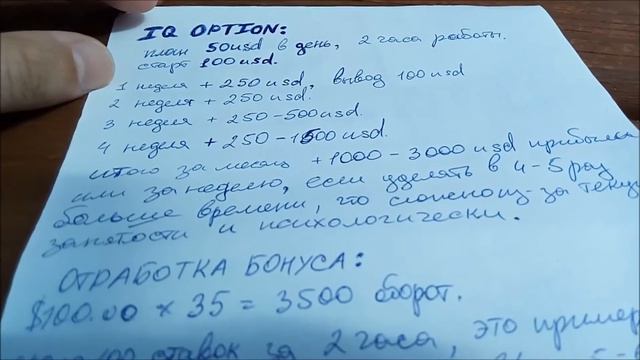 IQ OPTION:
план 50usd в день, 2 часа работы.
старт 100usd.
1 неделя + 250usd, вывод 100usd
2 неделя + 250usd.
3 неделя + 250-500usd.
4 неделя + 250-1500usd.
итого за месяц +1000-3000 usd прибыли
или за неделю, если уделять в 4-5 раз
больше времени, что сложно из-за текущ
занятости и психологически.
ОТРАБОТКА БОНУСА:
$100.00 × 35 = 3500 оборот.
100 ставок за 2 часа, это пример